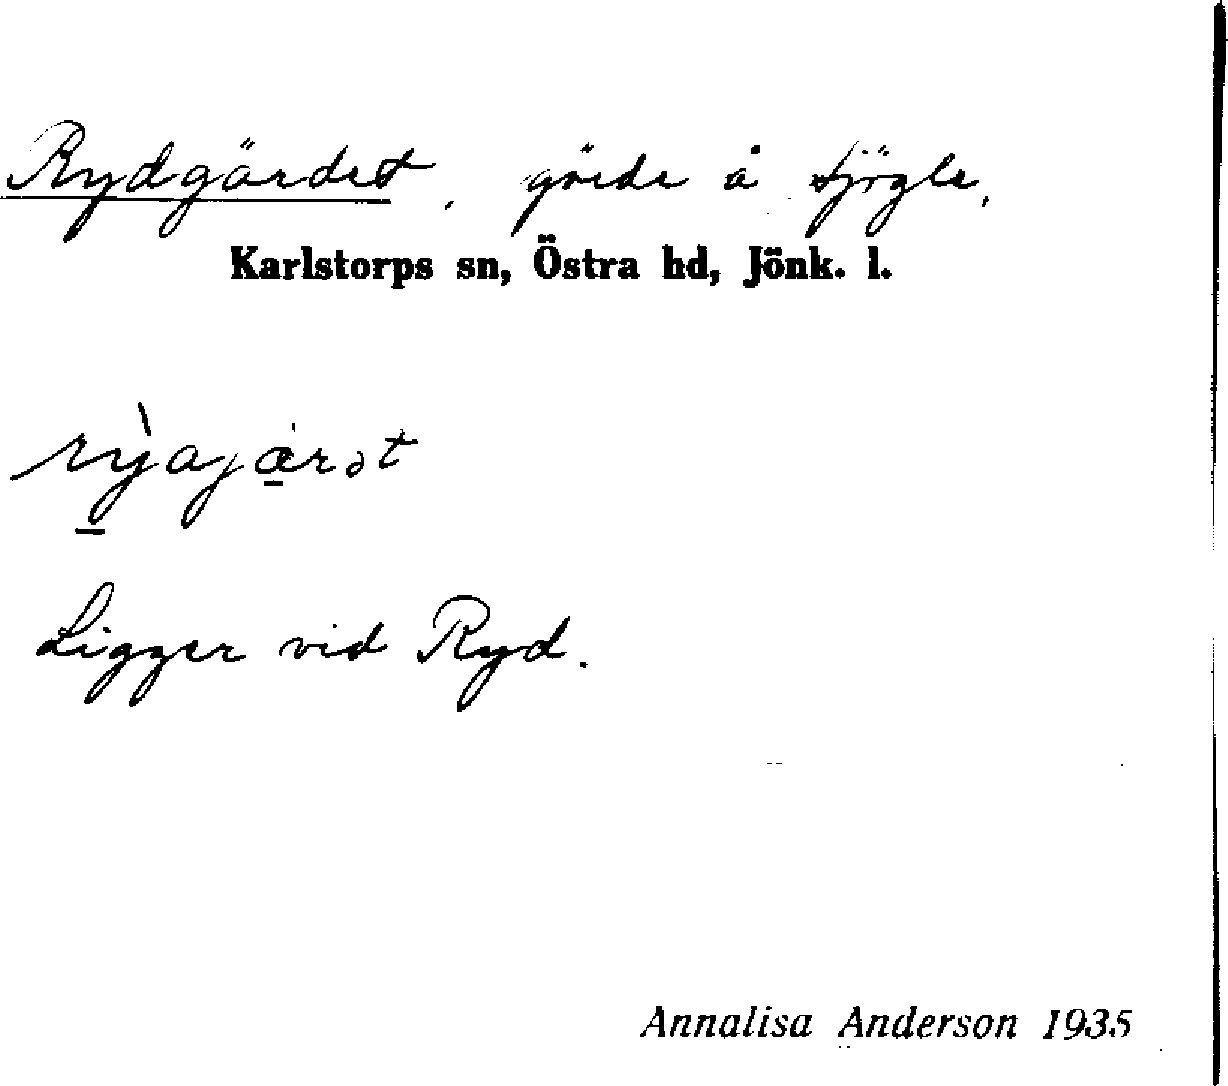 Rydgärdet, gärde å Sjögle,
Karlstorps sn, Östra hd, Jönk. l.
rỳajærət
Ligger vid Ryd.
Annalisa Anderson 1935